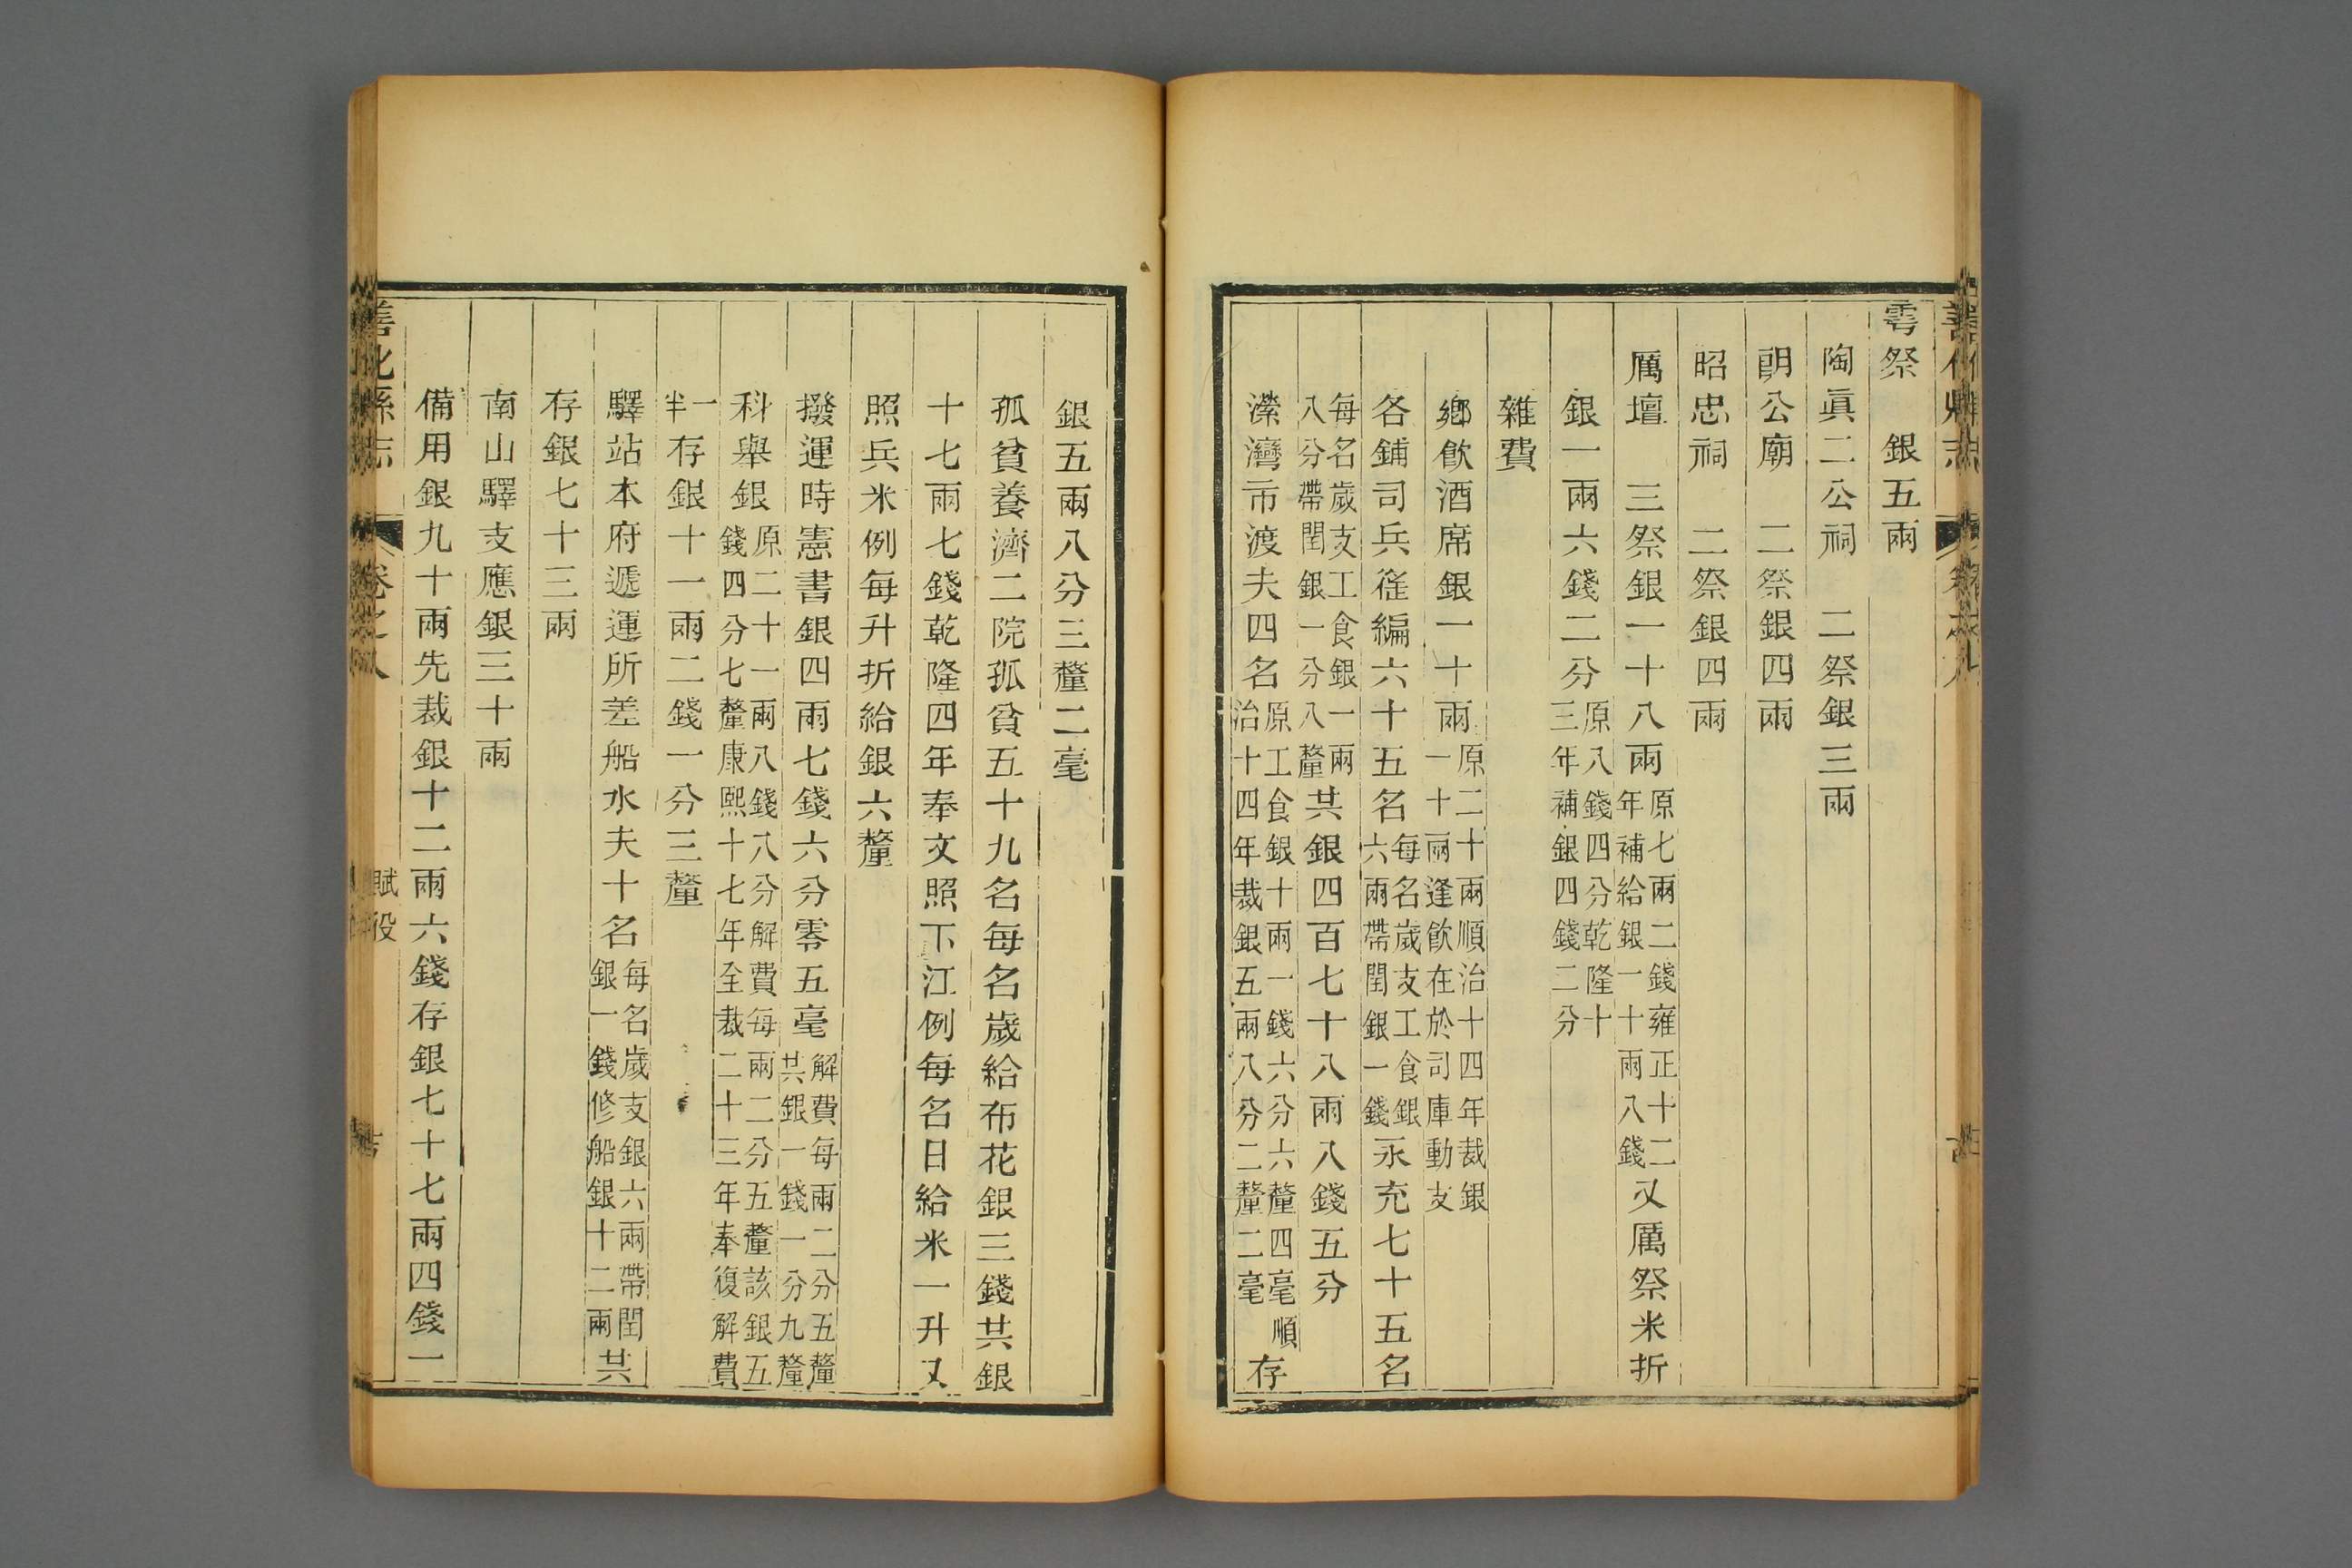 雩祭　銀五兩
陶眞二公祠　二祭銀三兩
朗公廟　二祭銀四兩
昭忠祠　二祭銀四兩
厲壇　三祭銀一十八兩原七兩二錢雍正十二年補給銀一十兩八錢又厲祭米折
銀一兩六錢二分原八錢四分乾隆十三年補銀四錢二分
雜費
鄉飲酒席銀一十兩原二十兩順治十四年裁銀一十兩逢飲在於司庫動支
各鋪司兵徭編六十五名每名歲支工食銀六兩帶閏銀一錢永充七十五名
每名歲支工食銀一兩八分帶閏銀一分八釐共銀四百七十八兩八錢五分
濼灣市渡夫四名原工食銀十兩一錢六分六釐四毫順治十四年裁銀五兩八分二釐二毫存
銀五兩八分三釐二毫
孤貧養濟二院孤貧五十九名每名歲給布花銀三錢共銀
十七兩七錢乾隆四年奉文照下江例每名日給米一升又
照兵米例每升折給銀六釐
撥運時憲書銀四兩七錢六分零五毫解費每兩二分五釐共銀一錢一分九釐
科舉銀原二十一兩八錢八分解費每兩二分五釐該銀五錢四分七釐康熙十七年全裁二十三年奉復解費
一半存銀十一兩二錢一分三釐
驛站本府遞運所差船水夫十名每名歲支銀六兩帶閏銀一錢修船銀十二兩共
存銀七十三兩
南山驛支應銀三十兩
備用銀九十兩先裁銀十二兩六錢存銀七十七兩四錢一
善化縣志　卷之八　賦役